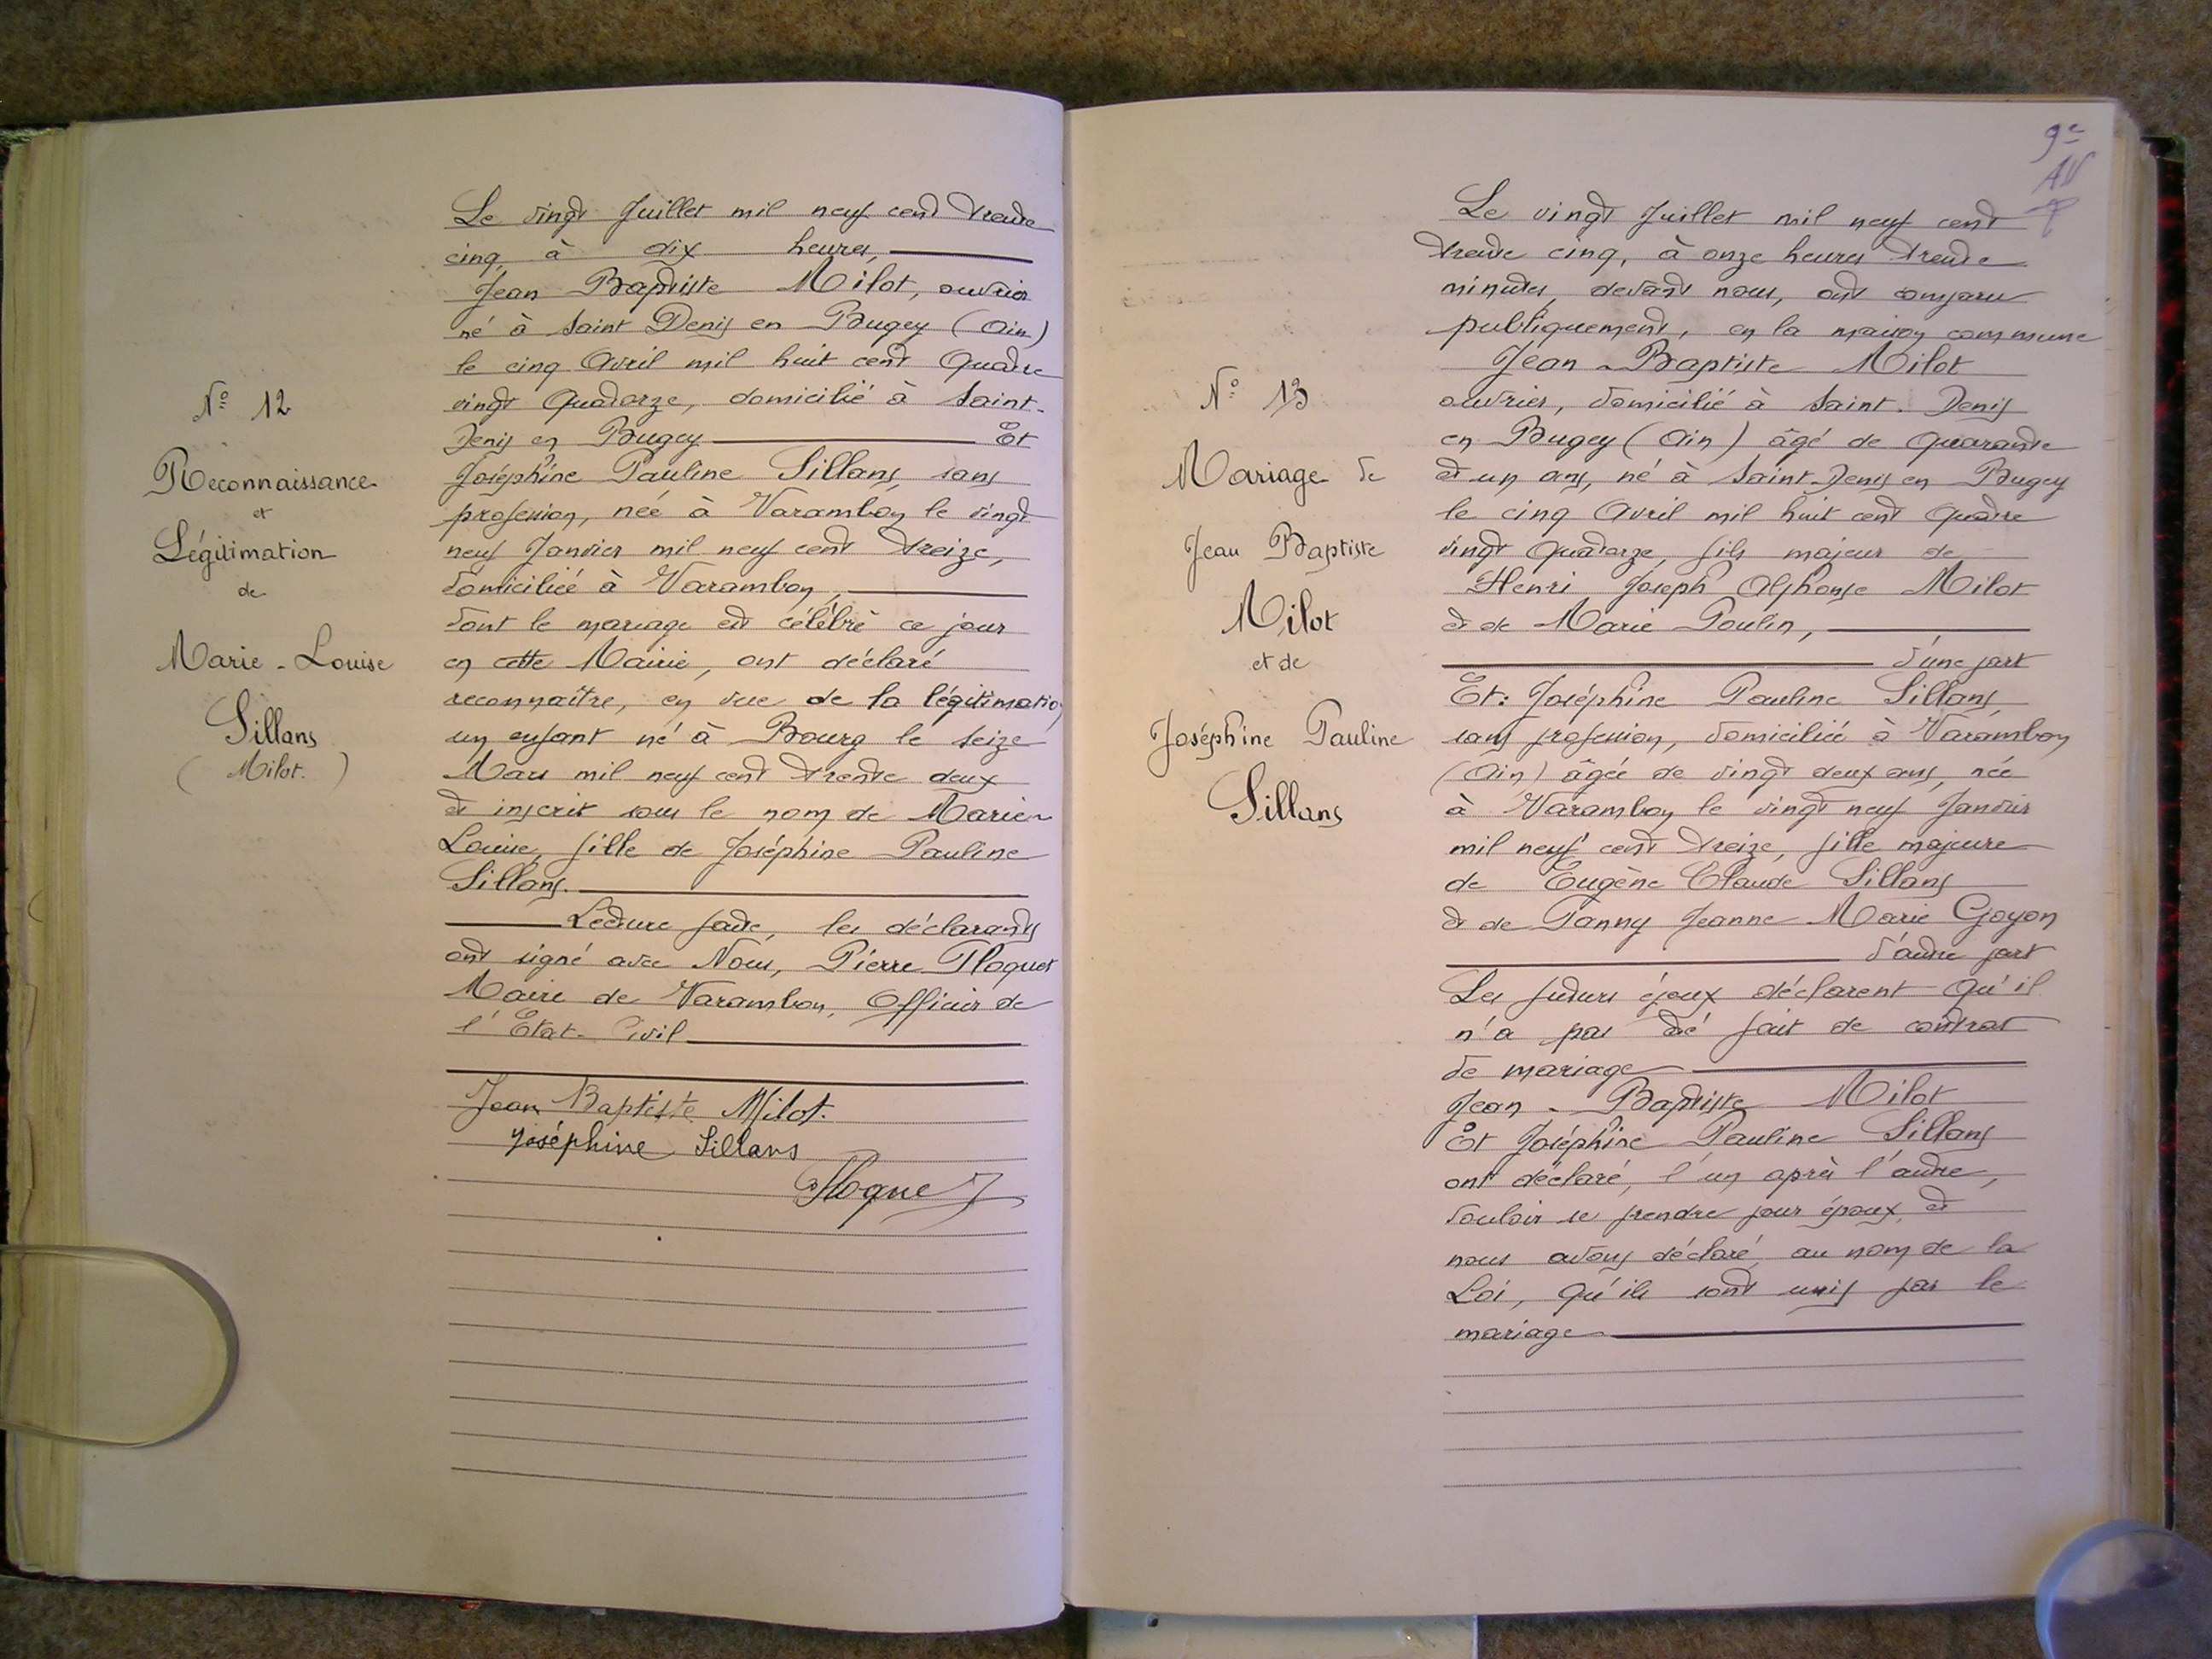 Le vingt Juillet mil neuf cent trente
cinq, à dix heures,
Jean Baptiste Milot, ouvrier
né à Saint Denis en Bugey (Ain)
le cinq Avril mil huit cent quatre
vingt quatorze, domicilié à Saint-
Denis en Bugey Et
Joséphine Pauline Sillans, sans
profession, née à Varambon le vingt
neuf Janvier mil neuf cent treize,
domiciliée à Varambon,
dont le mariage est célébré ce jour
en cette Mairie, ont déclaré
reconnaître, en vue de la légitimation
un enfant né à Bourg le seize
Mars mil neuf cent trente deux
et inscrit sous le nom de Marie-
Louise, fille de Joséphine Pauline
Sillans.
Lecture faite, les déclarants
ont signé avec Nous, Pierre Ploquet
Maire de Varambon, Officier de
l'Etat-Civil
Jean Baptiste Milot.
Joséphine Sillans
Ploquet
N° 12
Reconnaissance
et
Légitimation
de
Marie-Louise
Sillans
(Milot.)
9e
Le vingt Juillet mil neuf cent
trente cinq, à onze heures trente
minutes, devant nous, ont comparu
publiquement, en la maison commune
Jean-Baptiste Milot
ouvrier, domicilié à Saint-Denis
en Bugey (Ain) âgé de quarante
et un ans, né à Saint-Denis en Bugey
le cinq Avril mil huit cent quatre
vingt quatorze, fils majeur de
Henri Joseph Alphonse Milot
et de Marie Poulin,
d'une part
Et: Joséphine Pauline Sillans,
sans profession, domiciliée à Varambon
(Ain) âgée de vingt deux ans, née
à Varambon le vingt neuf Janvier
mil neuf cent treize, fille majeure
de Eugène Claude Sillans
et de Fanny Jeanne Marie Goyon
d'autre part
Les futurs époux déclarent qu'il
n'a pas été fait de contrat
de mariage
Jean-Baptiste Milot
Et Joséphine Pauline Sillans
ont déclaré, l'un après l'autre,
vouloir se prendre pour époux, et
nous avons déclaré, au nom de la
Loi, qu'ils sont unis par le
mariage
N° 13
Mariage de
Jean Baptiste
Milot
et de
Joséphine Pauline
Sillans